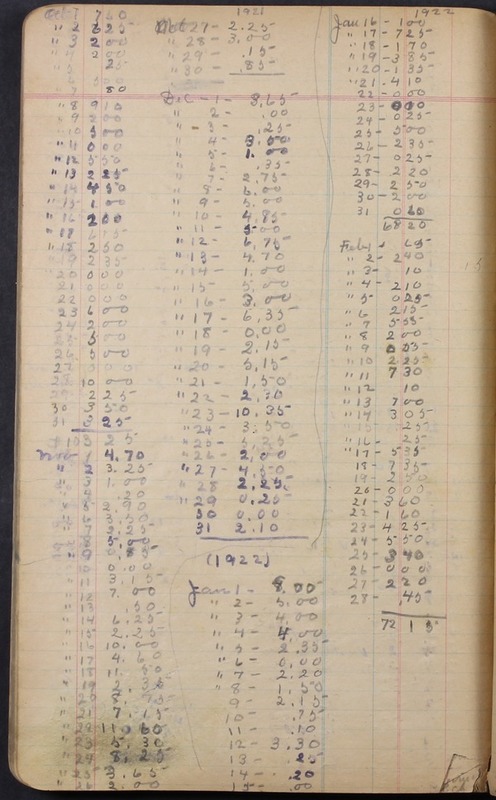 Oct 1 7 60
" 2 6 25
" 3 2 00
" 4 2 00
5 25
6 5 00
7 80
" 8 9 10
" 9 2 00
" 10 5 00
" 11 0 00
" 12 5 50
" 13 2 25
" 14 4 50
" 15 1 00
" 16 2 00
" 18 2 50
19 2 35
20 0 00
21 0 00
22 0 00
23 6 00
24 2 00
25 5 00
26 5 00
28 10 00
29 2 25
30 3 50
31 3 25
Nov 1 4.70
" 2 3.25
" 3 1.00
4 .20
5 2.90
7 2.25
11 3.15
12 7.00
13 .50
" 14 6.25
" 15 2.25
" 16 10.00
" 17 4.60
" 21 7.15
" 22 11 60
" 23 5.30
" 24 8.25
" 25 3.65
" 26 2.00
1921
Nov 27 - 2.25
" 28 - 3.00
" 29 - .15
" 30 - .85
Dec - 1 - 8,65
" 2 - .00
" - 3 - .25
" 4 - 3.50
" 5 - 1.00
" 6 - .35
" 7 - 2.75
" 8 - 6.00
" 9 - 5.00
" 10 - 4.85
" 11 - 5.00
" 12 - 6.75
" 13 - 4.70
" 14 - 1.00
" 15 - 5.00
" 16 - 3.00
" 17 6.35
" 18 0.00
" 19 2.15
" 20 - 5,15
" 21 - 1,50
" 22 -
" 23 - 10.35
" 24 - 3.50
" 25 - 5.25
" 26 - 2.00
" 27 - 4.50
" 28 2.25
" 29 0.25
30 0.00
31 2.10
(1922)
Jan 1 - 8.00
" 2 - 5.00
" 3 - 4.00
" 4 - 4.00
" 5 - 2.35
" 6 - 0.00
" 7 - 2.20
" 8 - 1.50
9 - 2.15
10 - .75
11 - .10
12 - 3.30
13 - .25
14 - .20
15 - .00
1922
Jan 16 - 1 00
" 17 - 7 25
" 18 - 1 70
" 19 - 3 85
" 20 - 1 35
" 21 - 4 10
22 - 0 00
23 0 00
24 - 0 25
25 - 5 00
26 - 2 35
27 - 0 25
28 - 2 20
29 - 2 50
30 - 2 00
31 0 60
68 20
Feb 1 - 65
" 2 - 2 40
" 3 - 10
" 4 - 2 10
" 5 0 25
" 6 2 15
" 7 5 55
" 8 2 00
" 9 0 25
" 10 2 25
" 11 7 30
" 12 10
" 13 7 00
" 14 3 05
15 25
" 16 - 25
" 17 - 5 35
18 - 7 35
19 - 2 50
20 - 0 00
21 - 3 60
22 - 1 60
23 - 4 25
24 - 5 50
25 - 3 40
26 - 0 00
27 - 2 20
28 - .45
72 15